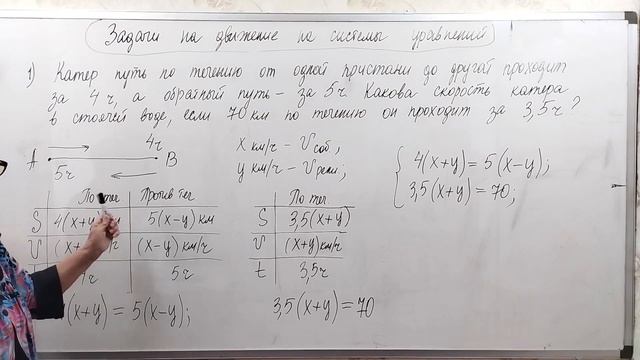 Задачи на движение на системы уравнений
1) Катер путь по течению от одной пристани до другой проходит
за 4ч, а обратный путь – за 5ч. Какова скорость катера
в стоячей воде, если 70 км по течению он проходит за 3,5ч?
4ч
A B
5ч
x км/ч – V соб,;
y км/ч – V реки;
{ 4(x+y) = 5(x-y);
3,5(x+y) = 70;
По теч Против теч
S 4(x+y) 5(x-y) км
V (x+ (x-y) км/ч
5ч
(x+y) = 5(x-y);
По теч
S 3,5(x+y)
V (x+y) км/ч
t 3,5ч
3,5(x+y) = 70